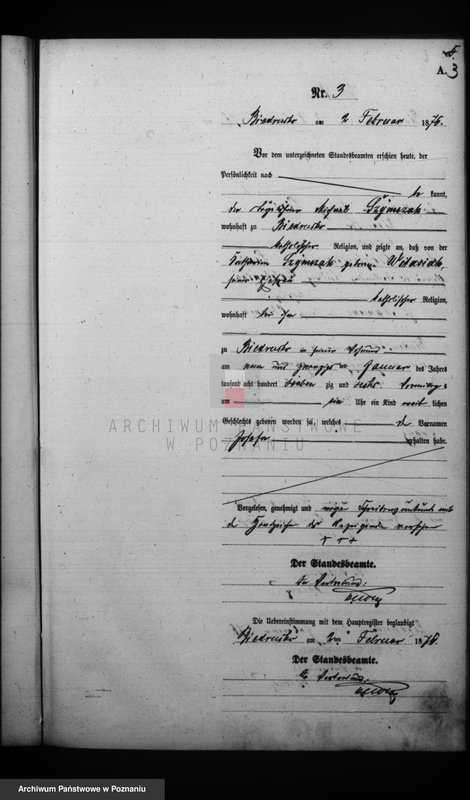 A.
3
Nr. 3
Biedrusko am 2 Februar 1876.
Vor dem unterzeichneten Standesbeamten erschien heute, der
Persönlichkeit nach
be kannt,
der Michael Szymczak
wohnhaft zu Biedrusko
katholischer Religion, und zeigte an, daß von der
Szymczak geborene
seiner Ehefrau
katholischer Religion,
wohnhaft bei ihm
zu Biedrusko in seiner Wohnung
am neun und zwanzigsten Januar des Jahres
tausend acht hundert sieben zig und sechs Vormittags
um Uhr ein Kind weib lichen
Geschlechts geboren worden sei, welches den Vornamen
Josefa erhalten habe.
ARCHIWUM PAŃSTWOWE
W POZNANIU
Vorgelesen, genehmigt und wegen Schreibensunkunde mit
Handzeichen des versehen
+ + +
Der Standesbeamte.
In Vertretung:
Die Uebereinstimmung mit dem Hauptregister beglaubigt
Biedrusko am 2ten Februar 1876.
Der Standesbeamte.
In Vertretung.
Archiwum Państwowe w Poznaniu